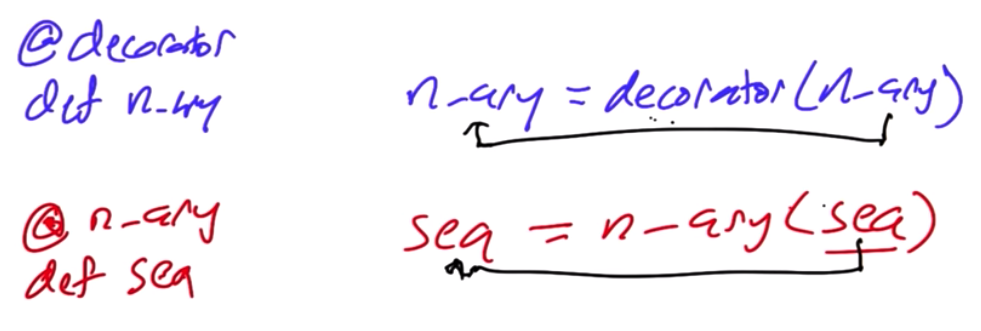 @decorator
def n_ary
n_ary = decorator(n_ary)
@n_ary
def seq
seq = n_ary(seq)